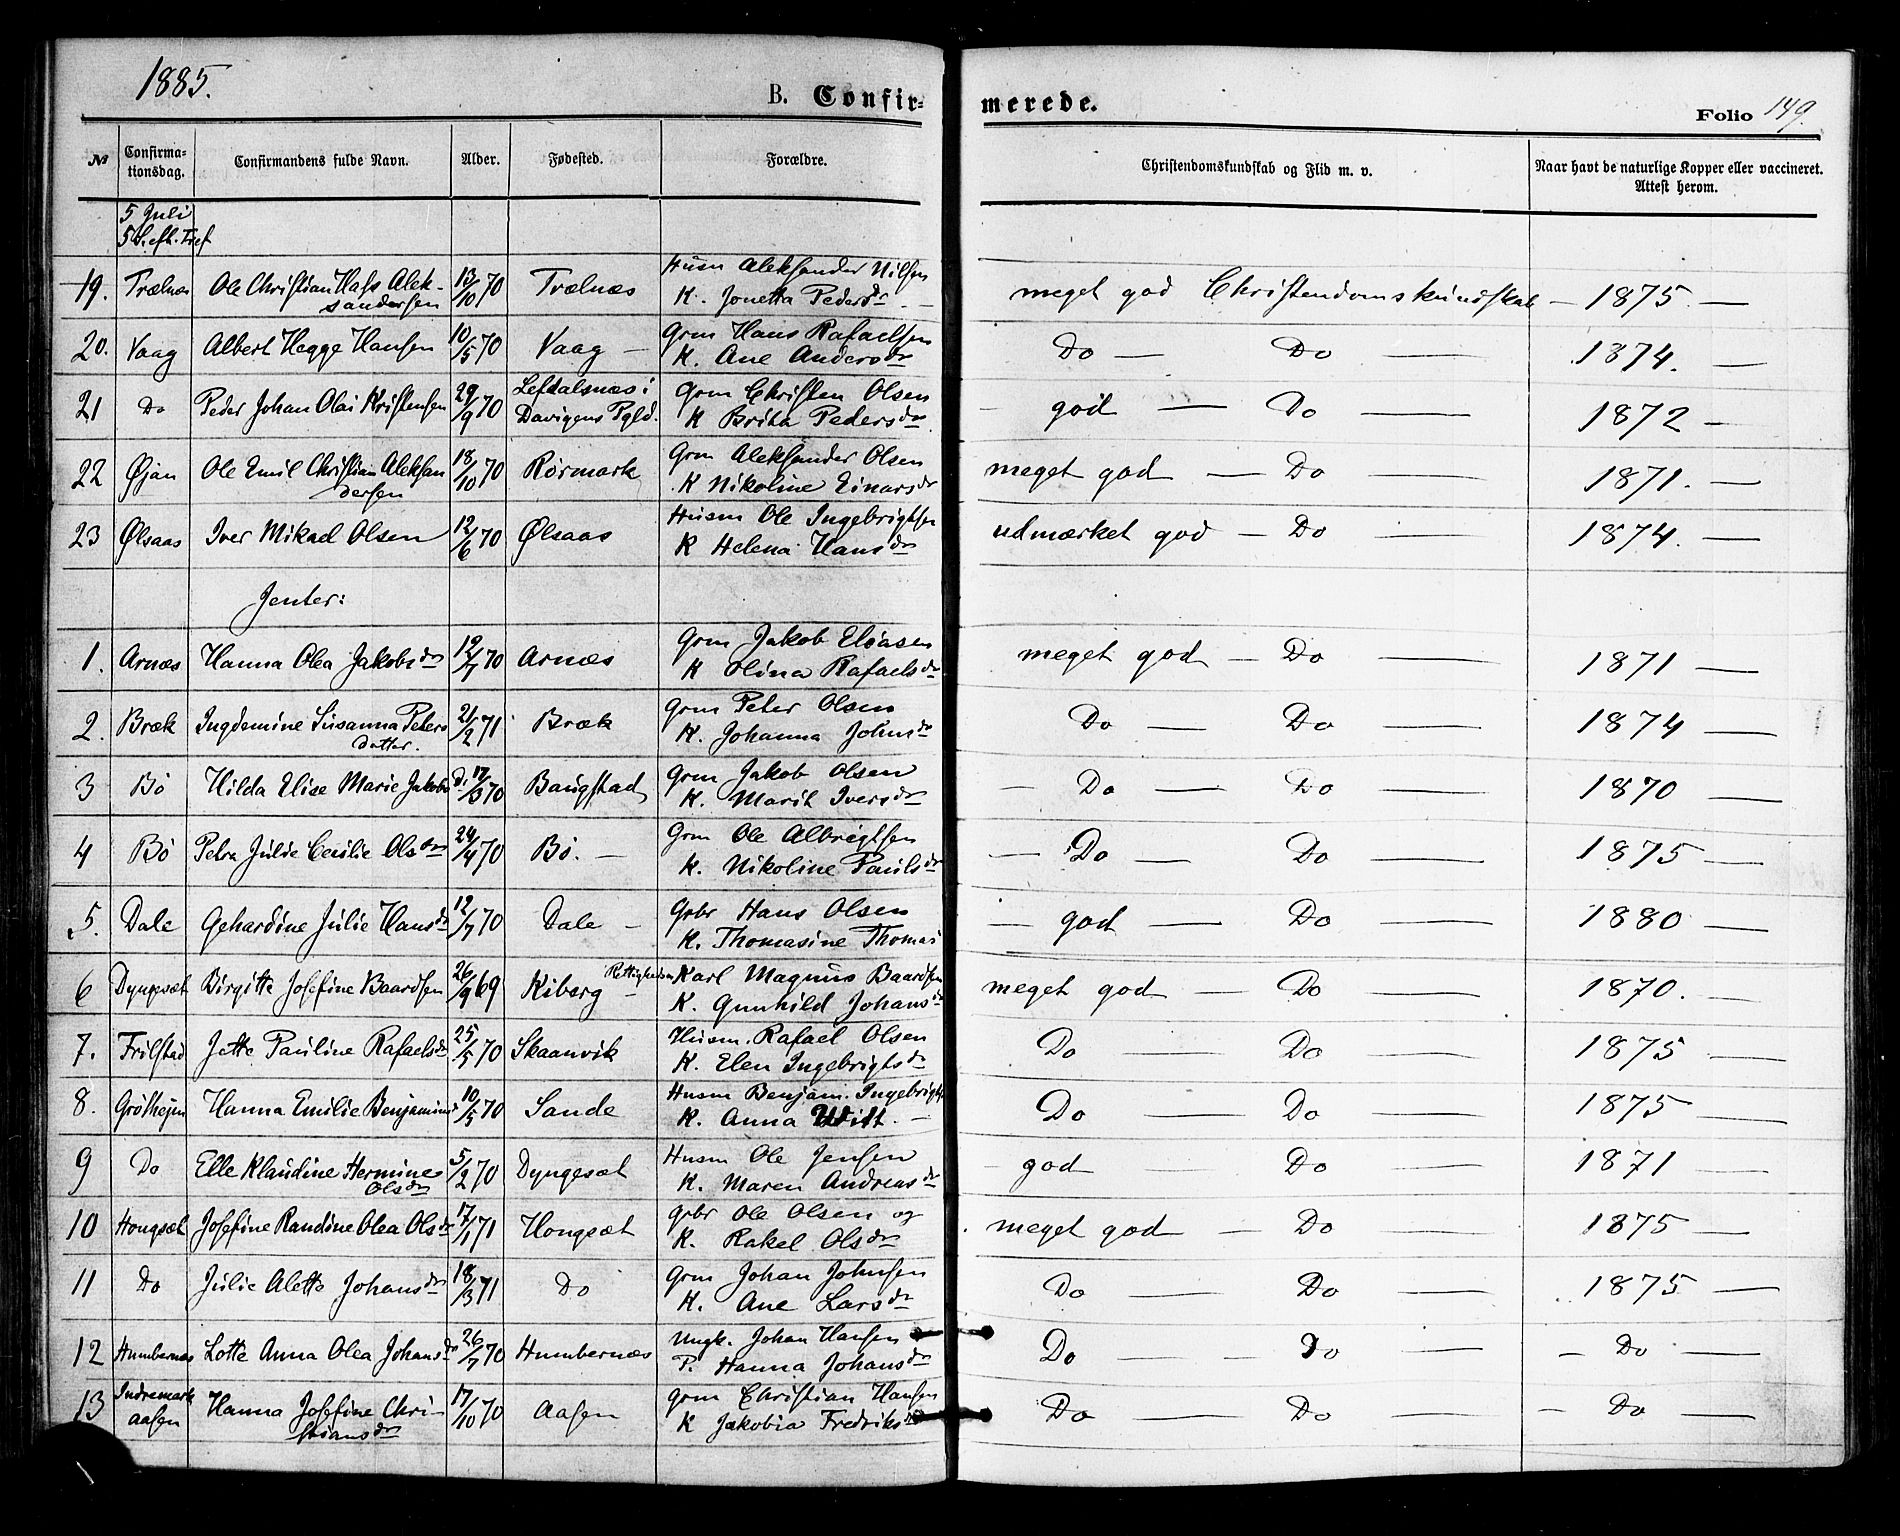 1885.
B. Confir-
merede.
Folio 149.
№ Confirma-tionsdag. Confirmandens fulde Navn. Alder. Fødested. Forældre. Christendomskundskab og Flid m. v. Naar havt de naturlige Kopper eller vaccineret. Attest herom.
5 Juli
5 S. eft. Tref
19. Trælnæs Ole Christian Hass Alek- 13/10 70 Trælnæs Husm Aleksander Nilsen meget god Christendomskundskab - 1875 -
sandersen K. Jonetta Pedersdr -
20. Vaag Albert Hegge Hansen 10/5 70 Vaag - Grm Hans Rafaelsen Do - Do - 1874. -
K. Ane Andersdr
21 Do Peder Johan Olai Kristensen 29/9 70 Lefdalsnæs i Grm Christen Olsen - god - Do - 1872 -
Davigens Pgld. K Britha Pedersdr
22 Øjan Ole Emil Christian Aleksan 18/10 70 Rørmark Grm Aleksander Olsen meget god - Do - 1871. -
dersen K Nikoline Einarsdr
23 Ølsaas Iver Mikael Olsen 12/6 70 Ølsaas Husm Ole Ingebrigtsen udmærket god - Do - 1874. -
K Helena Hansdr
Jenter:
1. Arnæs Hanna Olea Jakobsdr 12/7 70 Arnæs Grm Jakob Eliasen meget god - Do - 1871 -
K Olina Rafaelsdr
2. Bræk Ingdemine Susanna Peters 21/2 71 Bræk Grm Peter Olsen Do - Do - 1874 -
datter. K. Johanna Johnsdr
3 Bø Hilda Elise Marie Jakobsd. 17/3 70 Baugstad Grm Jakob Olsen - Do - Do - 1870 -
K. Marit Iversdr
4 Bø Petra Julie Cecilie Olsdr 24/4 70 Bø. - Grm Ole Albrigtsen - Do - Do - 1875 -
K. Nikoline Paulsdr
5. Dale Gehardine Julie Hansdr 12/7 70 Dale - Gbr Hans Olsen - god - Do - 1880 -
K. Thomasine Thomas
6 Dyngesæt Birgitte Josefine Baardsen 26/9 69 Kiberg - Karl Magnus Baardsen meget god - Do - 1870. -
K. Gunhild Johansdr
7. Frilstad Jette Pauline Rafaelsdr 25/5 70 Skaanvik Husm. Rafael Olsen Do - Do - 1875 -
K. Elen Ingebrigtsdr
8. Grøthejm Hanna Emilie Benjamins 10/5 70 Sande Husm Benjam. Ingebrigts Do - Do - 1875 -
K. Anna -
9 Do Elle Klaudine Hermine 5/2 70 Dyngesæt Husm Ole Jensen god Do - 1871 -
Olsdr K. Maren Andreasdr
10 Hongsæt Josefine Randine Olea Olsdr 17/1 71 Hongsæt Gbr Ole Olsen og meget god - Do - 1875 -
K. Rakel Olsdr
11 Do Julie Alette Johansdr 18/3 71 Do Grm Johan Johnsen Do - Do - 1875 -
K. Ane Larsdr
12 Humbernæs Lotte Anna Olea Johansdr 26/7 70 Humbernæs Ungk. Johan Hansen Do - Do - - Do -
P. Hanna Johansdr
13 Indremark Hanna Josefine Chri- 17/10 70 Aasen Grm Christian Hansen Do - Do - - Do -
aasen stiansdr K Jakobia Fredriksdr